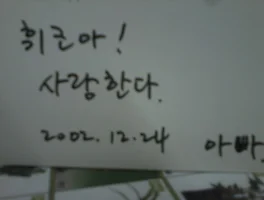 휘근아!
사랑한다.
2002.12.24 아빠.